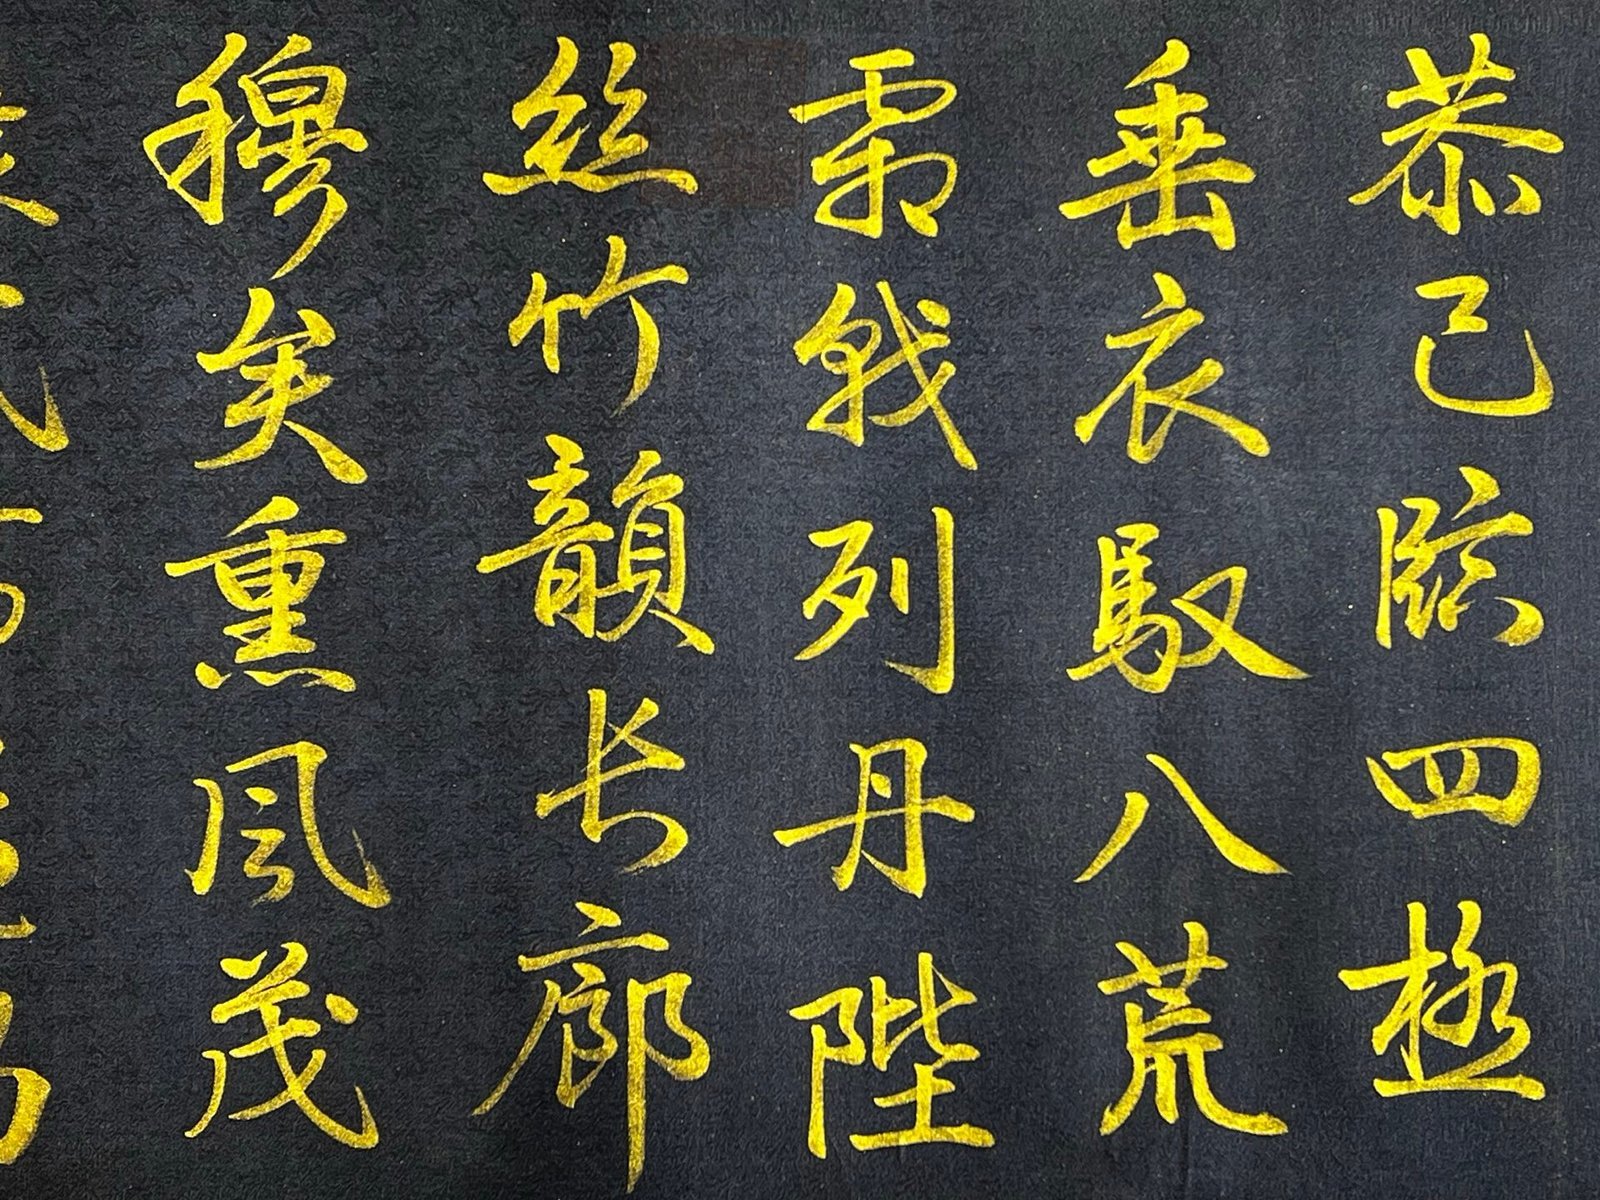 恭己临四極
垂衣馭八荒
霜戟列丹陛
絲竹韻长廊
穆矣熏风茂